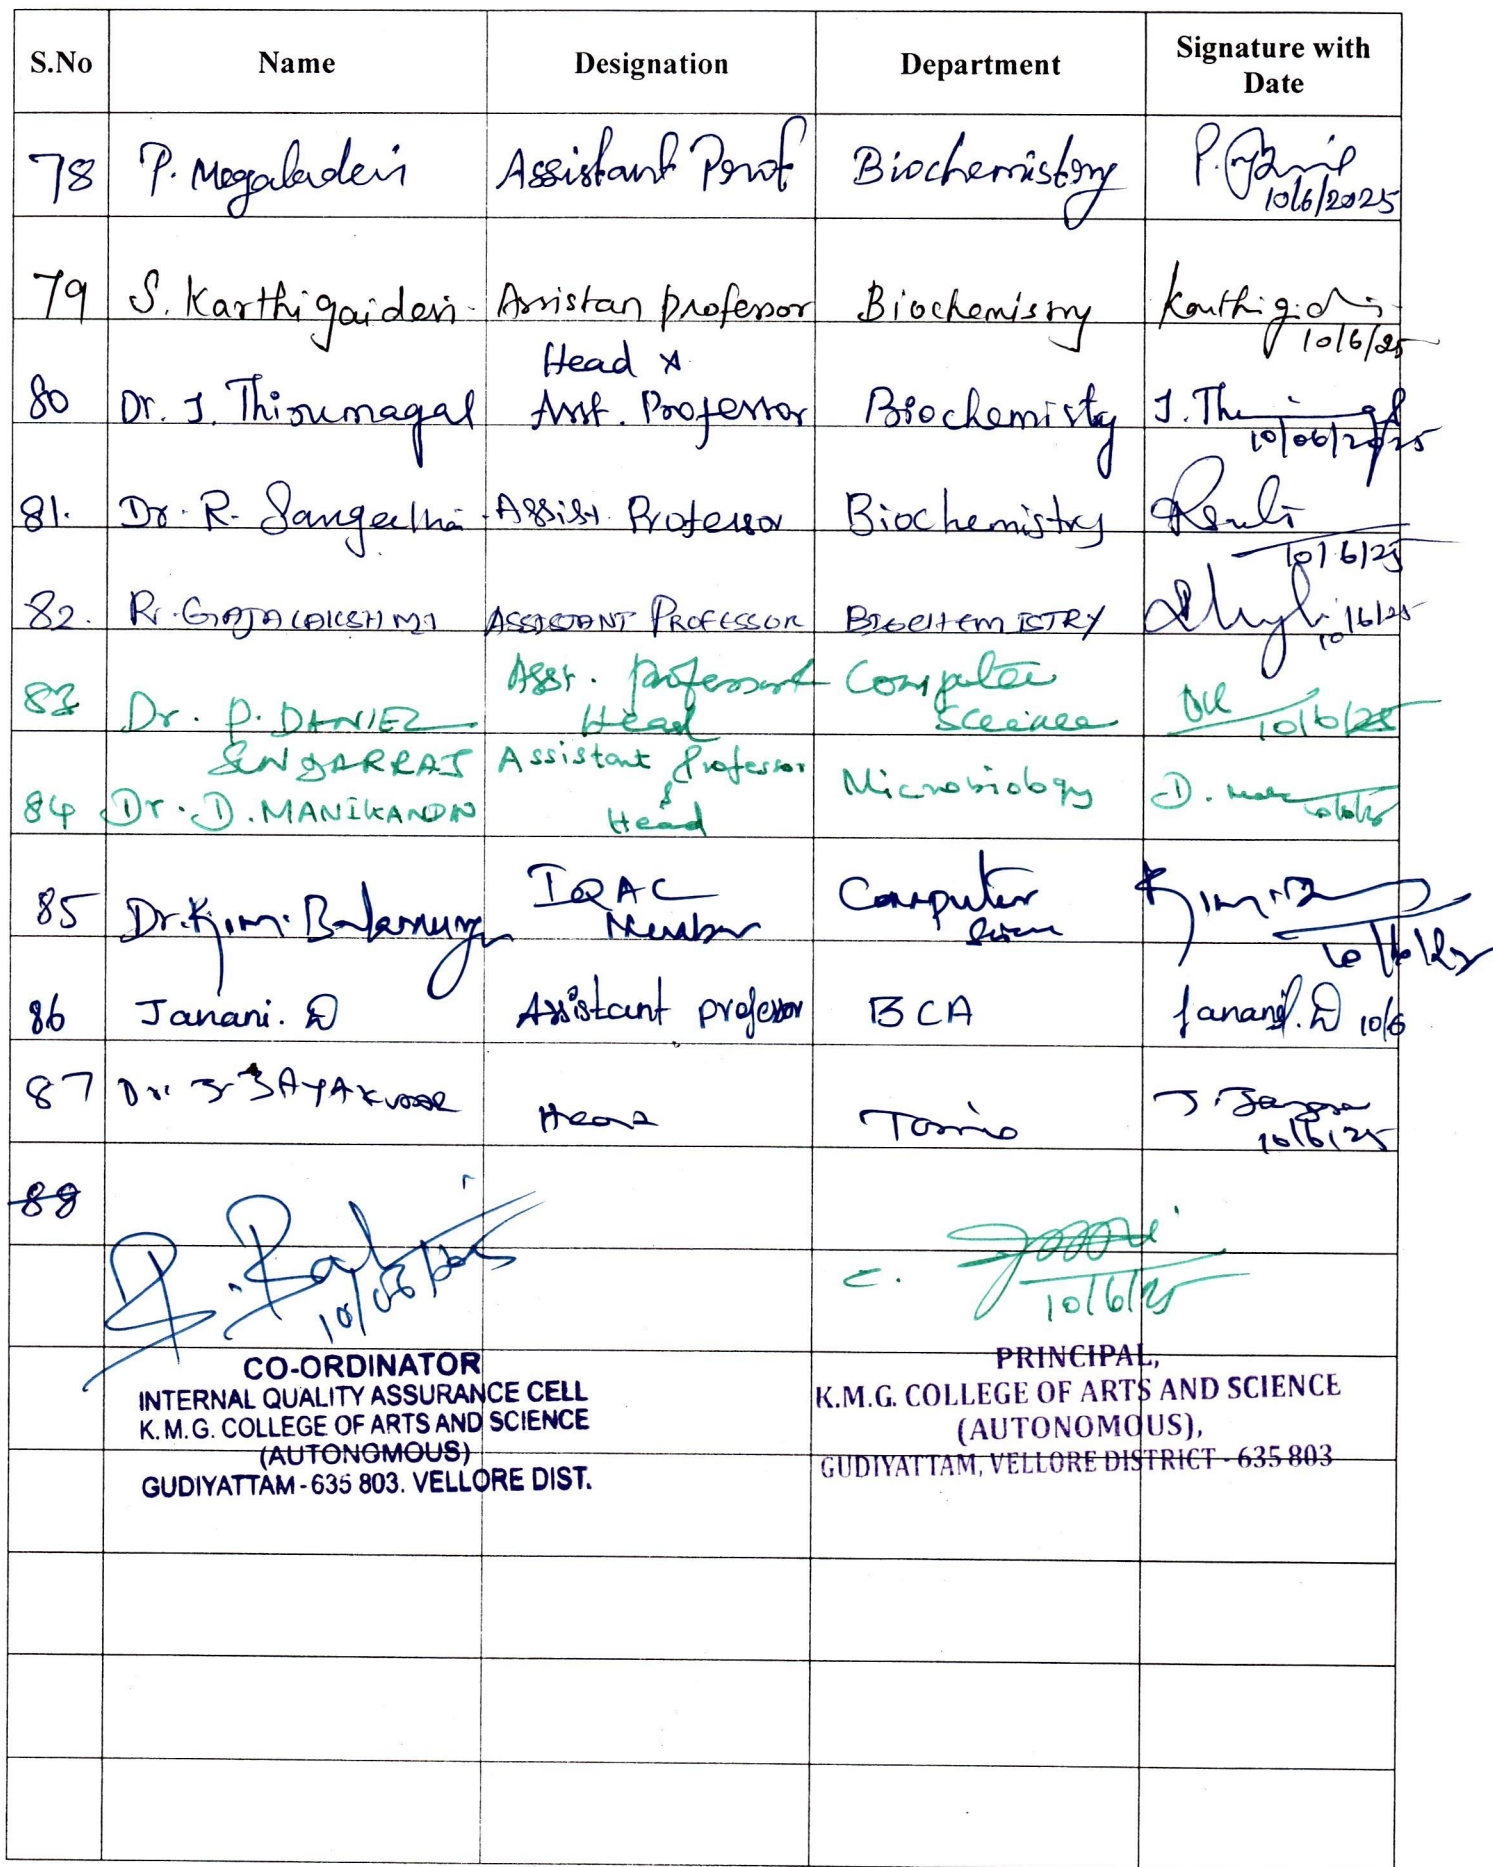 S.No Name Designation Department Signature with Date
78 P. Megaladevi Assistant Prof Biochemistry 10/6/2025
79 S. Karthigaidevi Assistan professor Biochemisry 10/6/25
Head &
80 Dr. J. Thirumagal Asst. Professor Biochemisty J. Th 10/06/2025
81. Dr. R. Sangeetha Assist. Professor Biochemistry 10/6/25
82. R. GAJALAKSHMI ASSISTANT PROFESSOR BIOCHEMISTRY 10/6/25
83 Dr. P. DANIEL Asst. professor & Head Computer Science 10/6/25
SUNDARRAJ
84 Dr. D. MANIKANDN Assistant Professor & Head Microbiology D.
85 Dr. K.M. Balamurugn IQAC Member Computer 10/6/25
86 Janani. D Assistant professor BCA Janani. D 10/6
87 Dr. J JAYAKUMAR Head 10/6/25
88
10/06/2025
10/6/25
CO-ORDINATOR
INTERNAL QUALITY ASSURANCE CELL
K.M.G. COLLEGE OF ARTS AND SCIENCE
(AUTONOMOUS)
GUDIYATTAM - 635 803. VELLORE DIST.
PRINCIPAL,
K.M.G. COLLEGE OF ARTS AND SCIENCE
(AUTONOMOUS),
GUDIYATTAM, VELLORE DISTRICT - 635 803